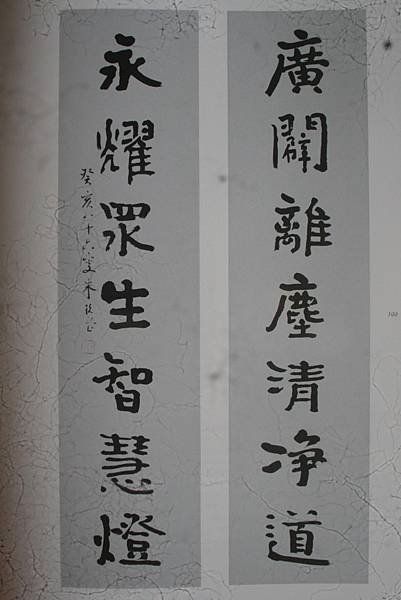 廣闢離塵清净道
永耀眾生智慧燈
癸亥八十六叟
100